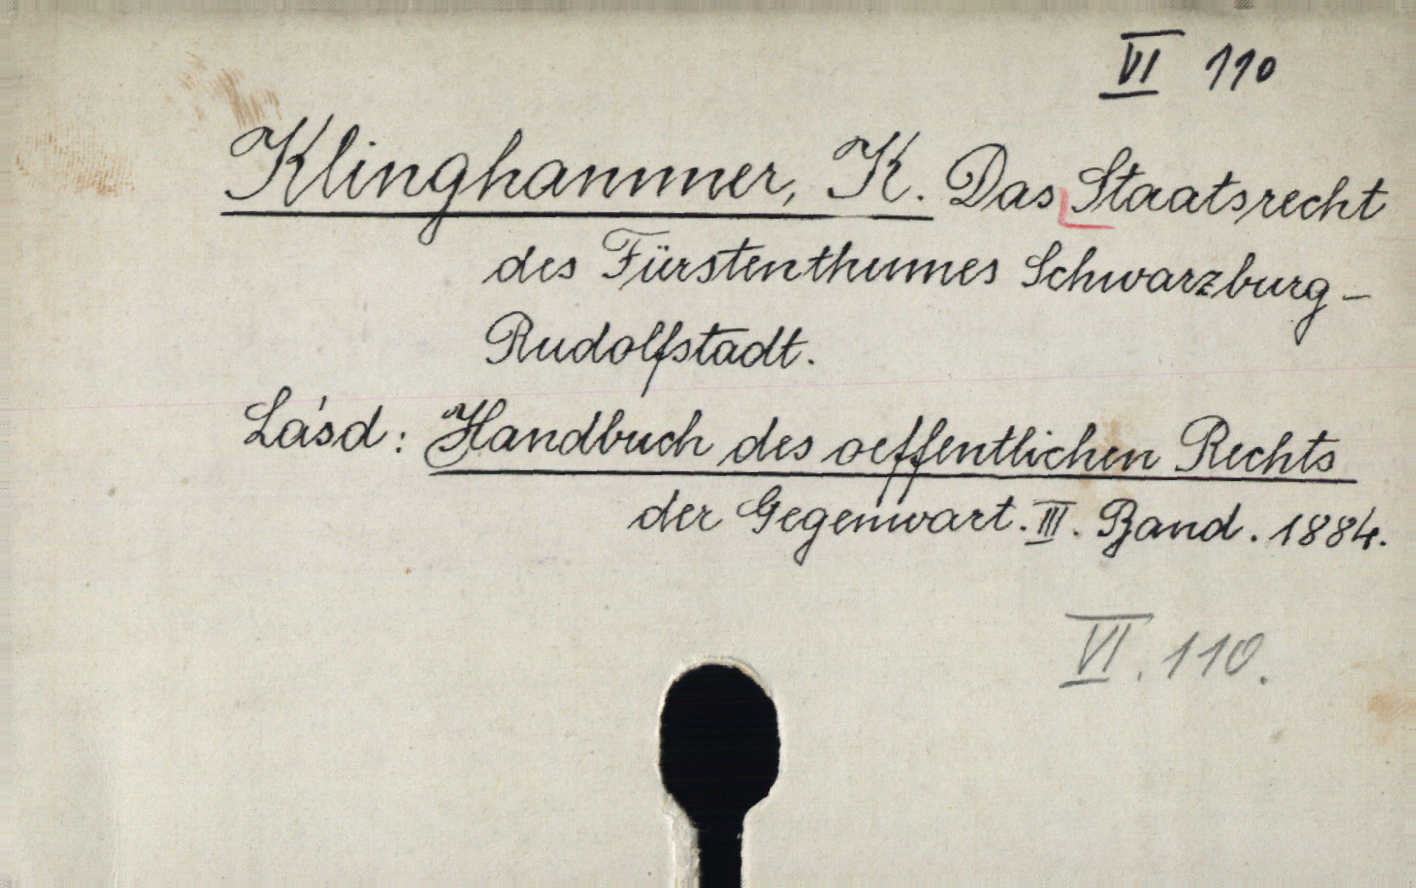 VI 110
Klinghammer, K. Das Staatsrecht
des Fürstenthumes Schwarzburg-
Rudolfstadt.
Lásd: Handbuch des oeffentlichen Rechts
der Gegenwart. III. Band. 1884.
VI. 110.